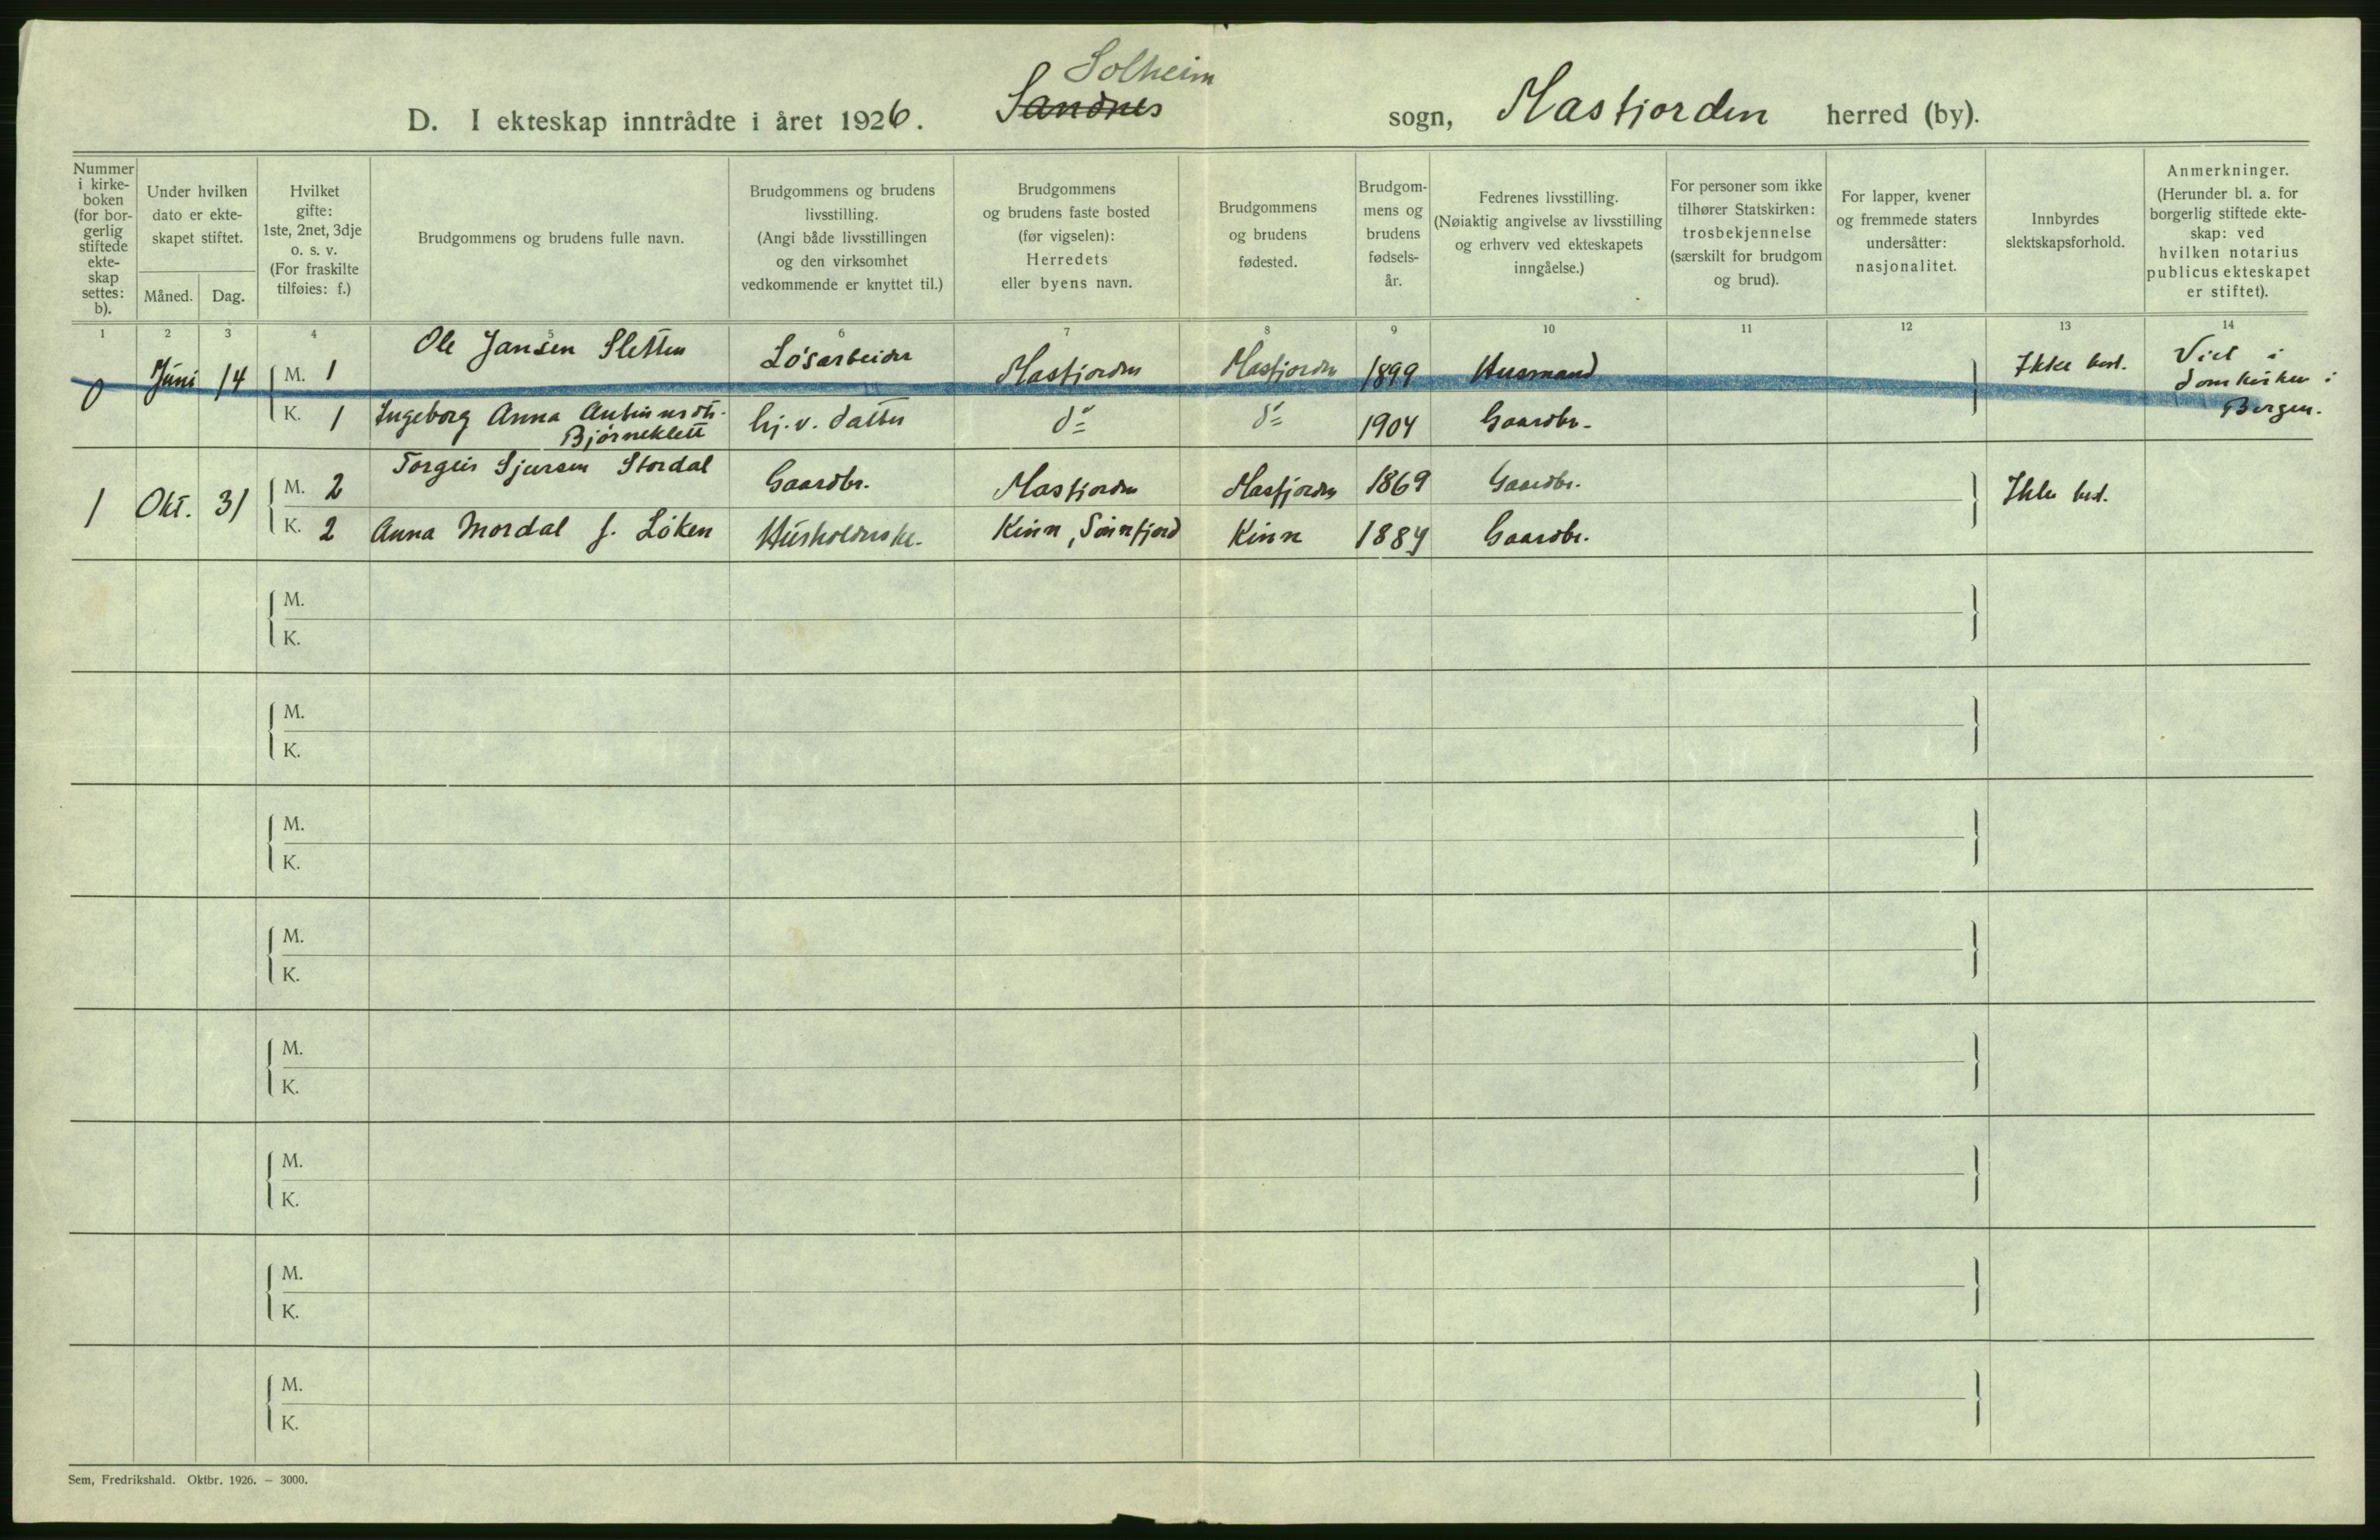 Solheim
D. I ekteskap inntrådte i året 1926. Sandnes sogn, Masfjorden herred (by).
Nummer i kirke-boken (for bor-gerlig stiftede ekte-skap settes: b).
Under hvilken dato er ekte-skapet stiftet.
Måned. Dag.
Hvilket gifte: 1ste, 2net, 3dje o. s. v. (For fraskilte tilføies: f.)
Brudgommens og brudens fulle navn.
Brudgommens og brudens livsstilling. (Angi både livsstillingen og den virksomhet vedkommende er knyttet til.)
Brudgommens og brudens faste bosted (før vigselen): Herredets eller byens navn.
Brudgommens og brudens fødested.
Brudgom-mens og brudens fødsels-år.
Fedrenes livsstilling. (Nøiaktig angivelse av livsstilling og erhverv ved ekteskapets inngåelse.)
For personer som ikke tilhører Statskirken: trosbekjennelse (særskilt for brudgom og brud).
For lapper, kvener og fremmede staters undersåtter: nasjonalitet.
Innbyrdes slektskapsforhold.
Anmerkninger. (Herunder bl. a. for borgerlig stiftede ekte-skap: ved hvilken notarius publicus ekteskapet er stiftet).
1 2 3 4 5 6 7 8 9 10 11 12 13 14
0 Juni 14 M. 1 Ole Jansen Sletten Løsarbeider Masfjorden Masfjorden 1899 Husmand Ikke besl. Viet i Domkirken i Bergen.
K. 1 Ingeborg Anna Bjørneklett hj. v. datter do do 1904 Gaardbr.
1 Okt. 31 M. 2 Torgeir Sjursen Stordal Gaardbr. Masfjorden Masfjorden 1869 Gaardbr. Ikke besl.
K. 2 Anna Mordal f. Løken Husholderske. Kinn, Sønnfjord Kinn 1884 Gaardbr.
M.
K.
M.
K.
M.
K.
M.
K.
M.
K.
M.
K.
M.
K.
M.
K.
Sem, Fredrikshald. Oktbr. 1926. — 3000.